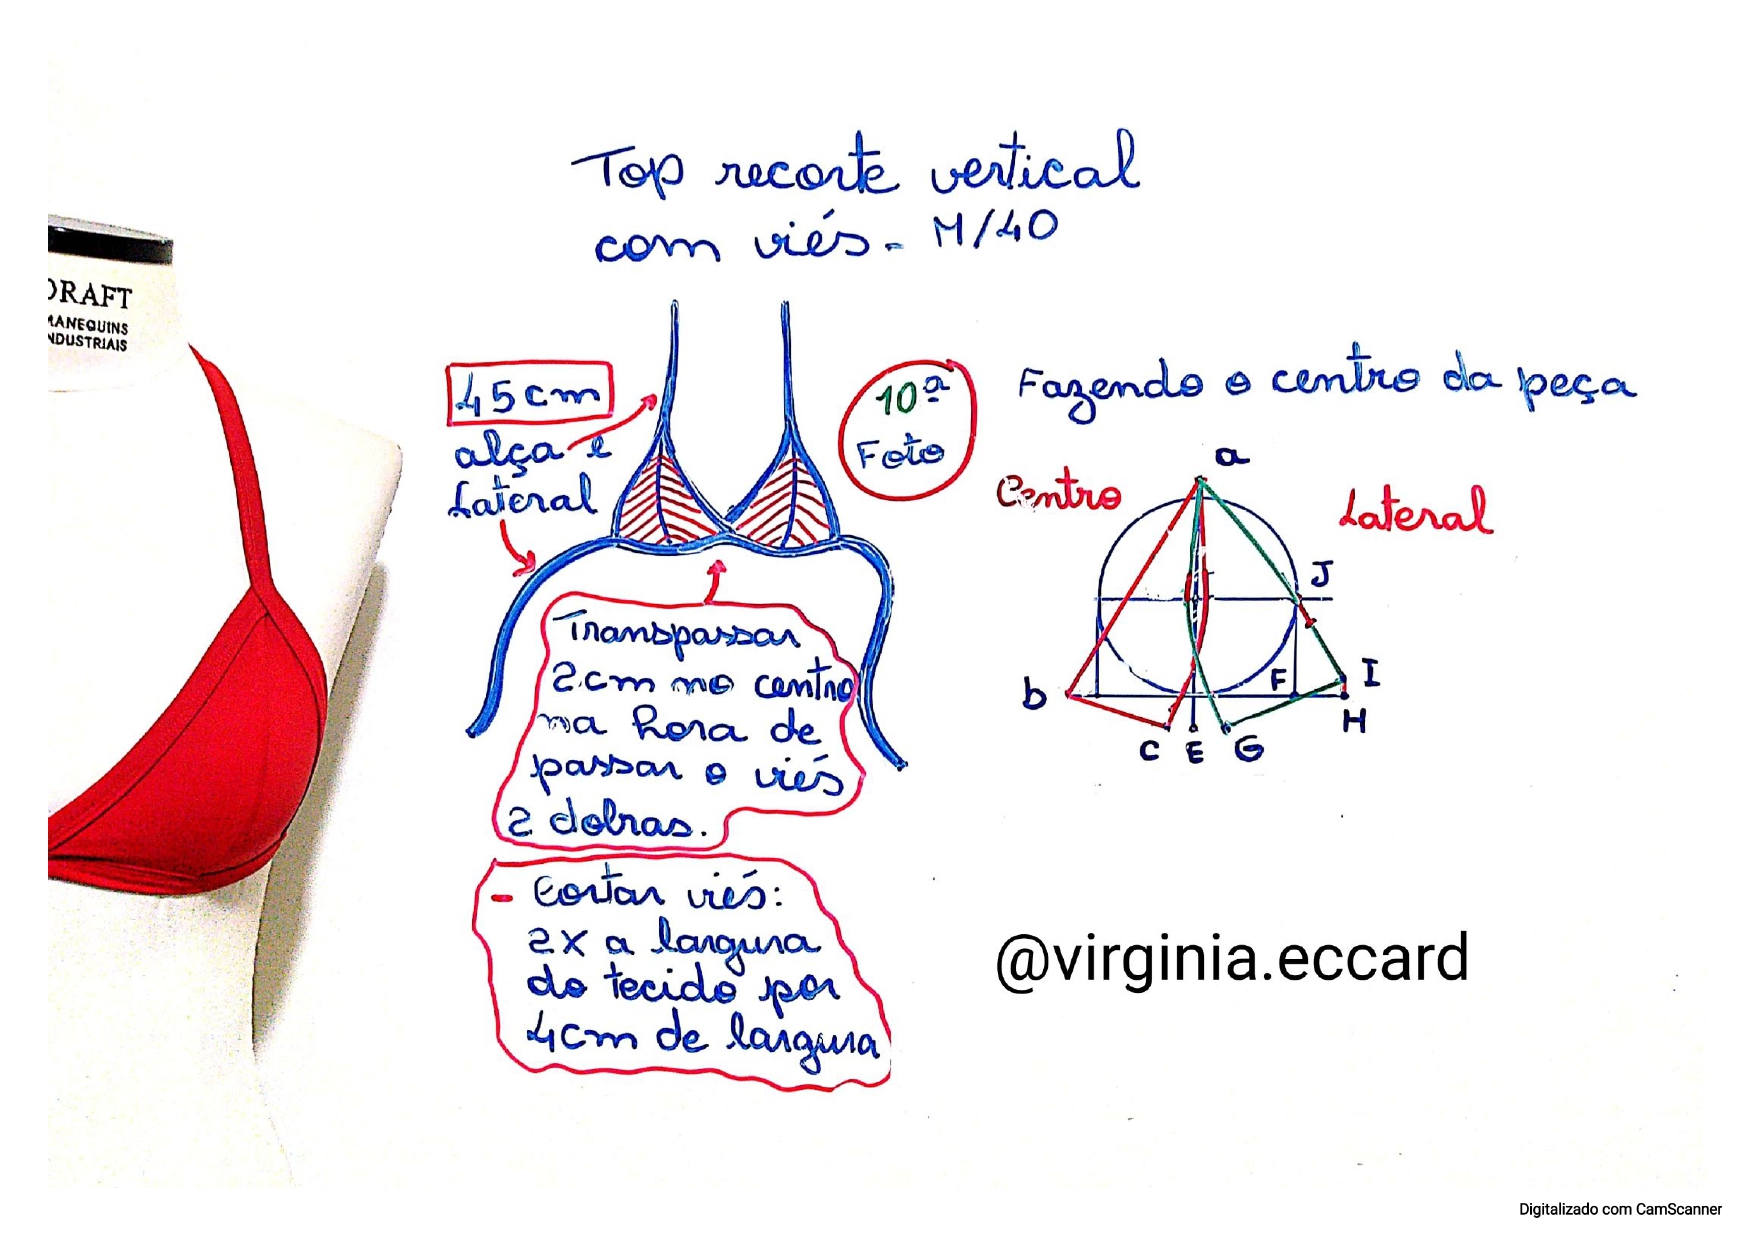 Top recorte vertical
com viés - M/40
DRAFT
MANEQUINS
INDUSTRIAIS
45cm
alça e
Lateral
10ª
Foto
Fazendo o centro da peça
a
Centro
Lateral
J
b
F
I
H
C E G
Transpassar
2cm no centro
na hora de
passar o viés
2 dobras.
- Cortar viés:
2x a largura
do tecido por
4cm de largura
@virginia.eccard
Digitalizado com CamScanner